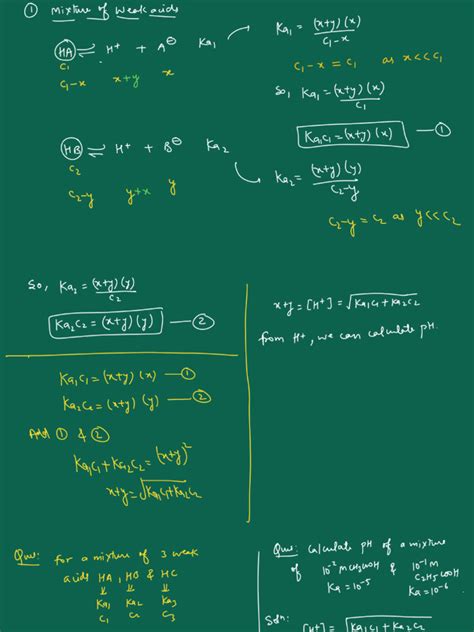 ① Mixture of weak acids
HA ⇌ H⁺ + A⊖ Ka₁
C₁
C₁-x x+y x
Ka₁ = (x+y)(x) / C₁-x
C₁-x = C₁ as x<<C₁
So, Ka₁ = (x+y)(x) / C₁
Ka₁C₁ = (x+y)(x) — ①
HB ⇌ H⁺ + B⊖ Ka₂
C₂
C₂-y y+x y
Ka₂ = (x+y)(y) / C₂-y
C₂-y = C₂ as y<<C₂
So, Ka₂ = (x+y)(y) / C₂
Ka₂C₂ = (x+y)(y) — ②
Ka₁C₁ = (x+y)(x) — ①
Ka₂C₂ = (x+y)(y) — ②
Add ① & ②
Ka₁C₁+Ka₂C₂ = (x+y)²
x+y = √Ka₁C₁+Ka₂C₂
x+y = [H⁺] = √Ka₁C₁+Ka₂C₂
from H⁺, we can calculate pH.
Que: for a mixture of 3 weak
acids HA, HB & HC
↓ ↓ ↓
Ka₁ Ka₂ Ka₃
C₁ C₂ C₃
Que: Calculate pH of a mixture
of 10⁻²M CH₃COOH & 10⁻¹M C₂H₅COOH
Ka = 10⁻⁵ Ka = 10⁻⁶
Soln: [H⁺] = √Ka₁C₁ + Ka₂C₂